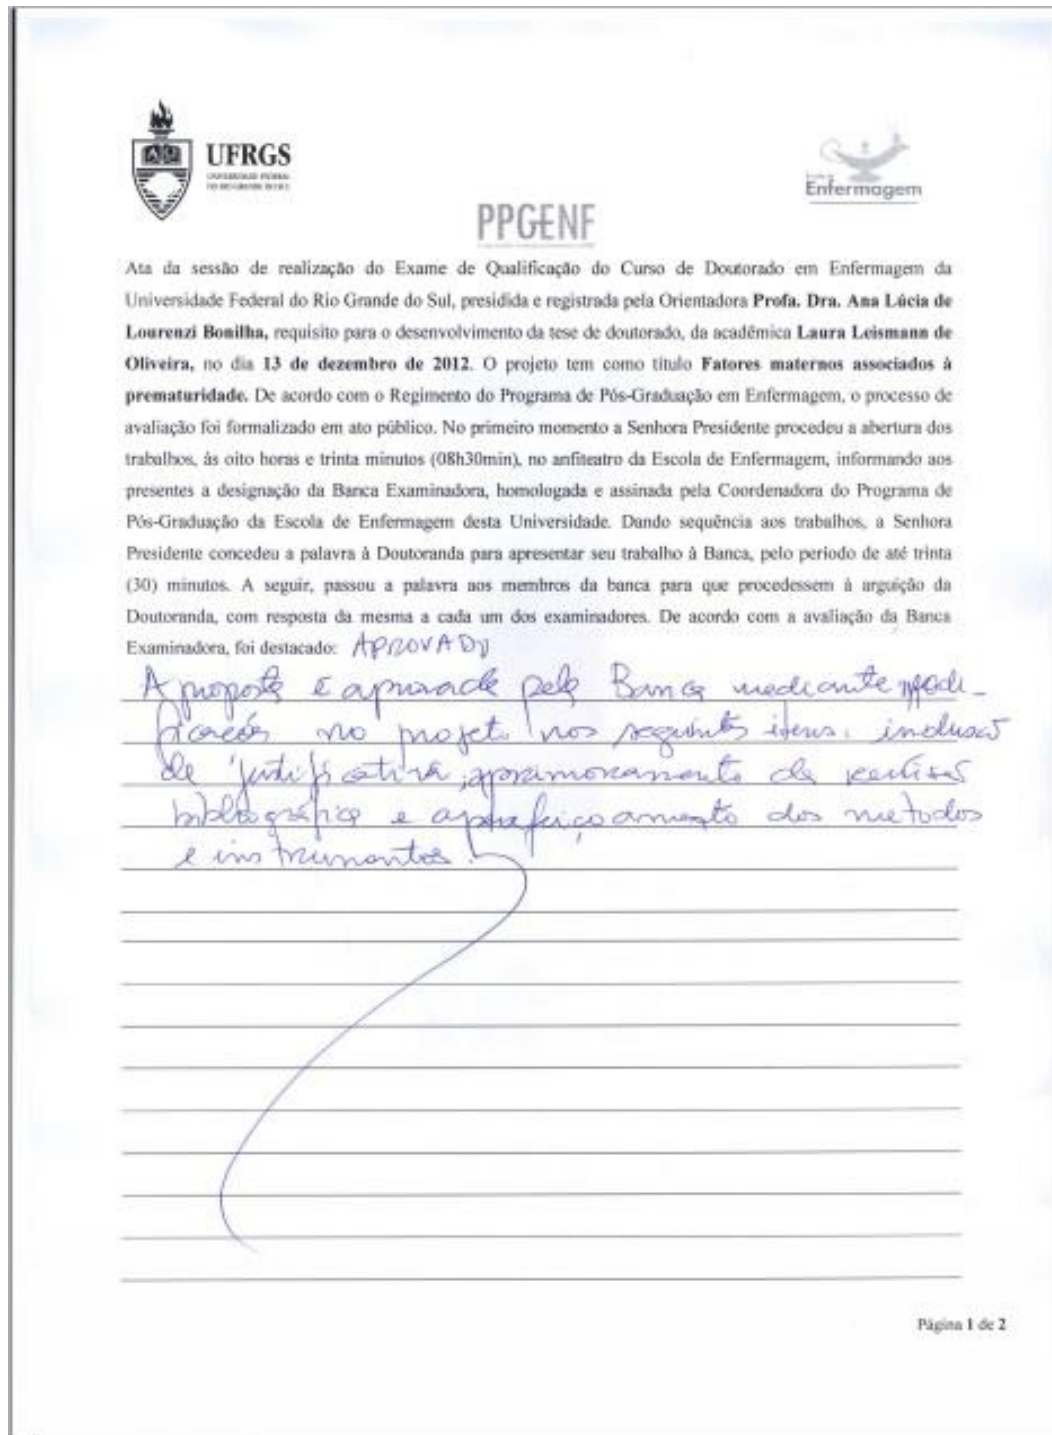 UFRGS
UNIVERSIDADE FEDERAL
DO RIO GRANDE DO SUL
Enfermagem
PPGENF
Ata da sessão de realização do Exame de Qualificação do Curso de Doutorado em Enfermagem da
Universidade Federal do Rio Grande do Sul, presidida e registrada pela Orientadora Profa. Dra. Ana Lúcia de
Lourenzi Bonilha, requisito para o desenvolvimento da tese de doutorado, da acadêmica Laura Leismann de
Oliveira, no dia 13 de dezembro de 2012. O projeto tem como título Fatores maternos associados à
prematuridade. De acordo com o Regimento do Programa de Pós-Graduação em Enfermagem, o processo de
avaliação foi formalizado em ato público. No primeiro momento a Senhora Presidente procedeu a abertura dos
trabalhos, às oito horas e trinta minutos (08h30min), no anfiteatro da Escola de Enfermagem, informando aos
presentes a designação da Banca Examinadora, homologada e assinada pela Coordenadora do Programa de
Pós-Graduação da Escola de Enfermagem desta Universidade. Dando sequência aos trabalhos, a Senhora
Presidente concedeu a palavra à Doutoranda para apresentar seu trabalho à Banca, pelo período de até trinta
(30) minutos. A seguir, passou a palavra aos membros da banca para que procedessem à arguição da
Doutoranda, com resposta da mesma a cada um dos examinadores. De acordo com a avaliação da Banca
Examinadora, foi destacado: APROVADO
A proposta é aprovada pela Banca mediante modi-
ficações no projeto nos seguintes itens: inclusão
de justificativa, aprimoramento da revisão
bibliográfica e aperfeiçoamento dos métodos
e instrumentos.
Página 1 de 2